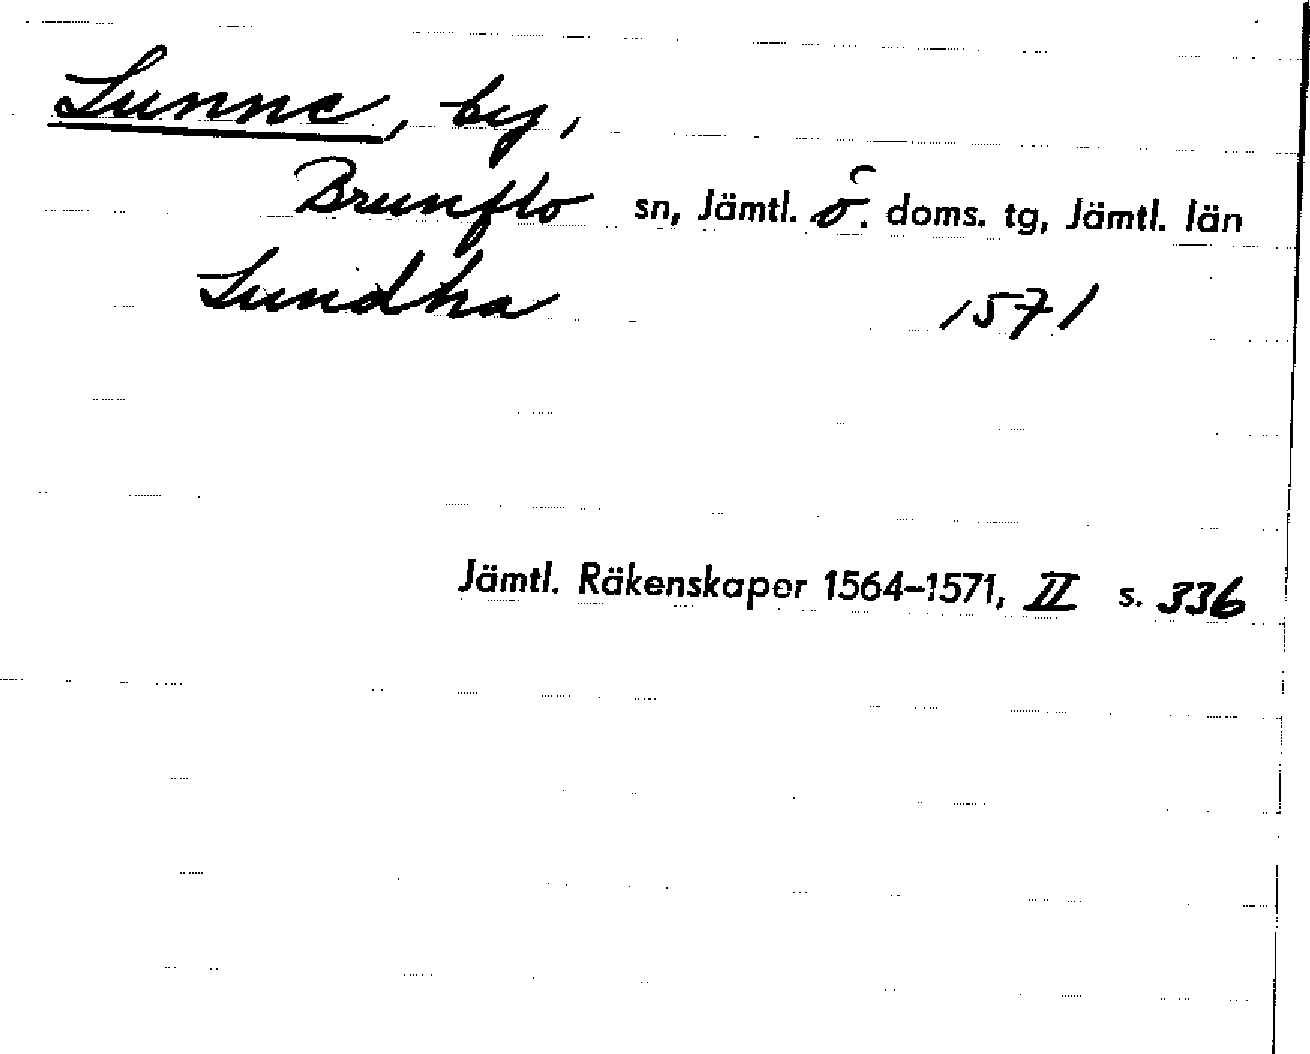 Lunne, by,
Brunflo sn, Jämtl. ö. doms. tg, Jämtl. län
Lundha 1571
Jämtl. Räkenskaper 1564–1571, II s. 336